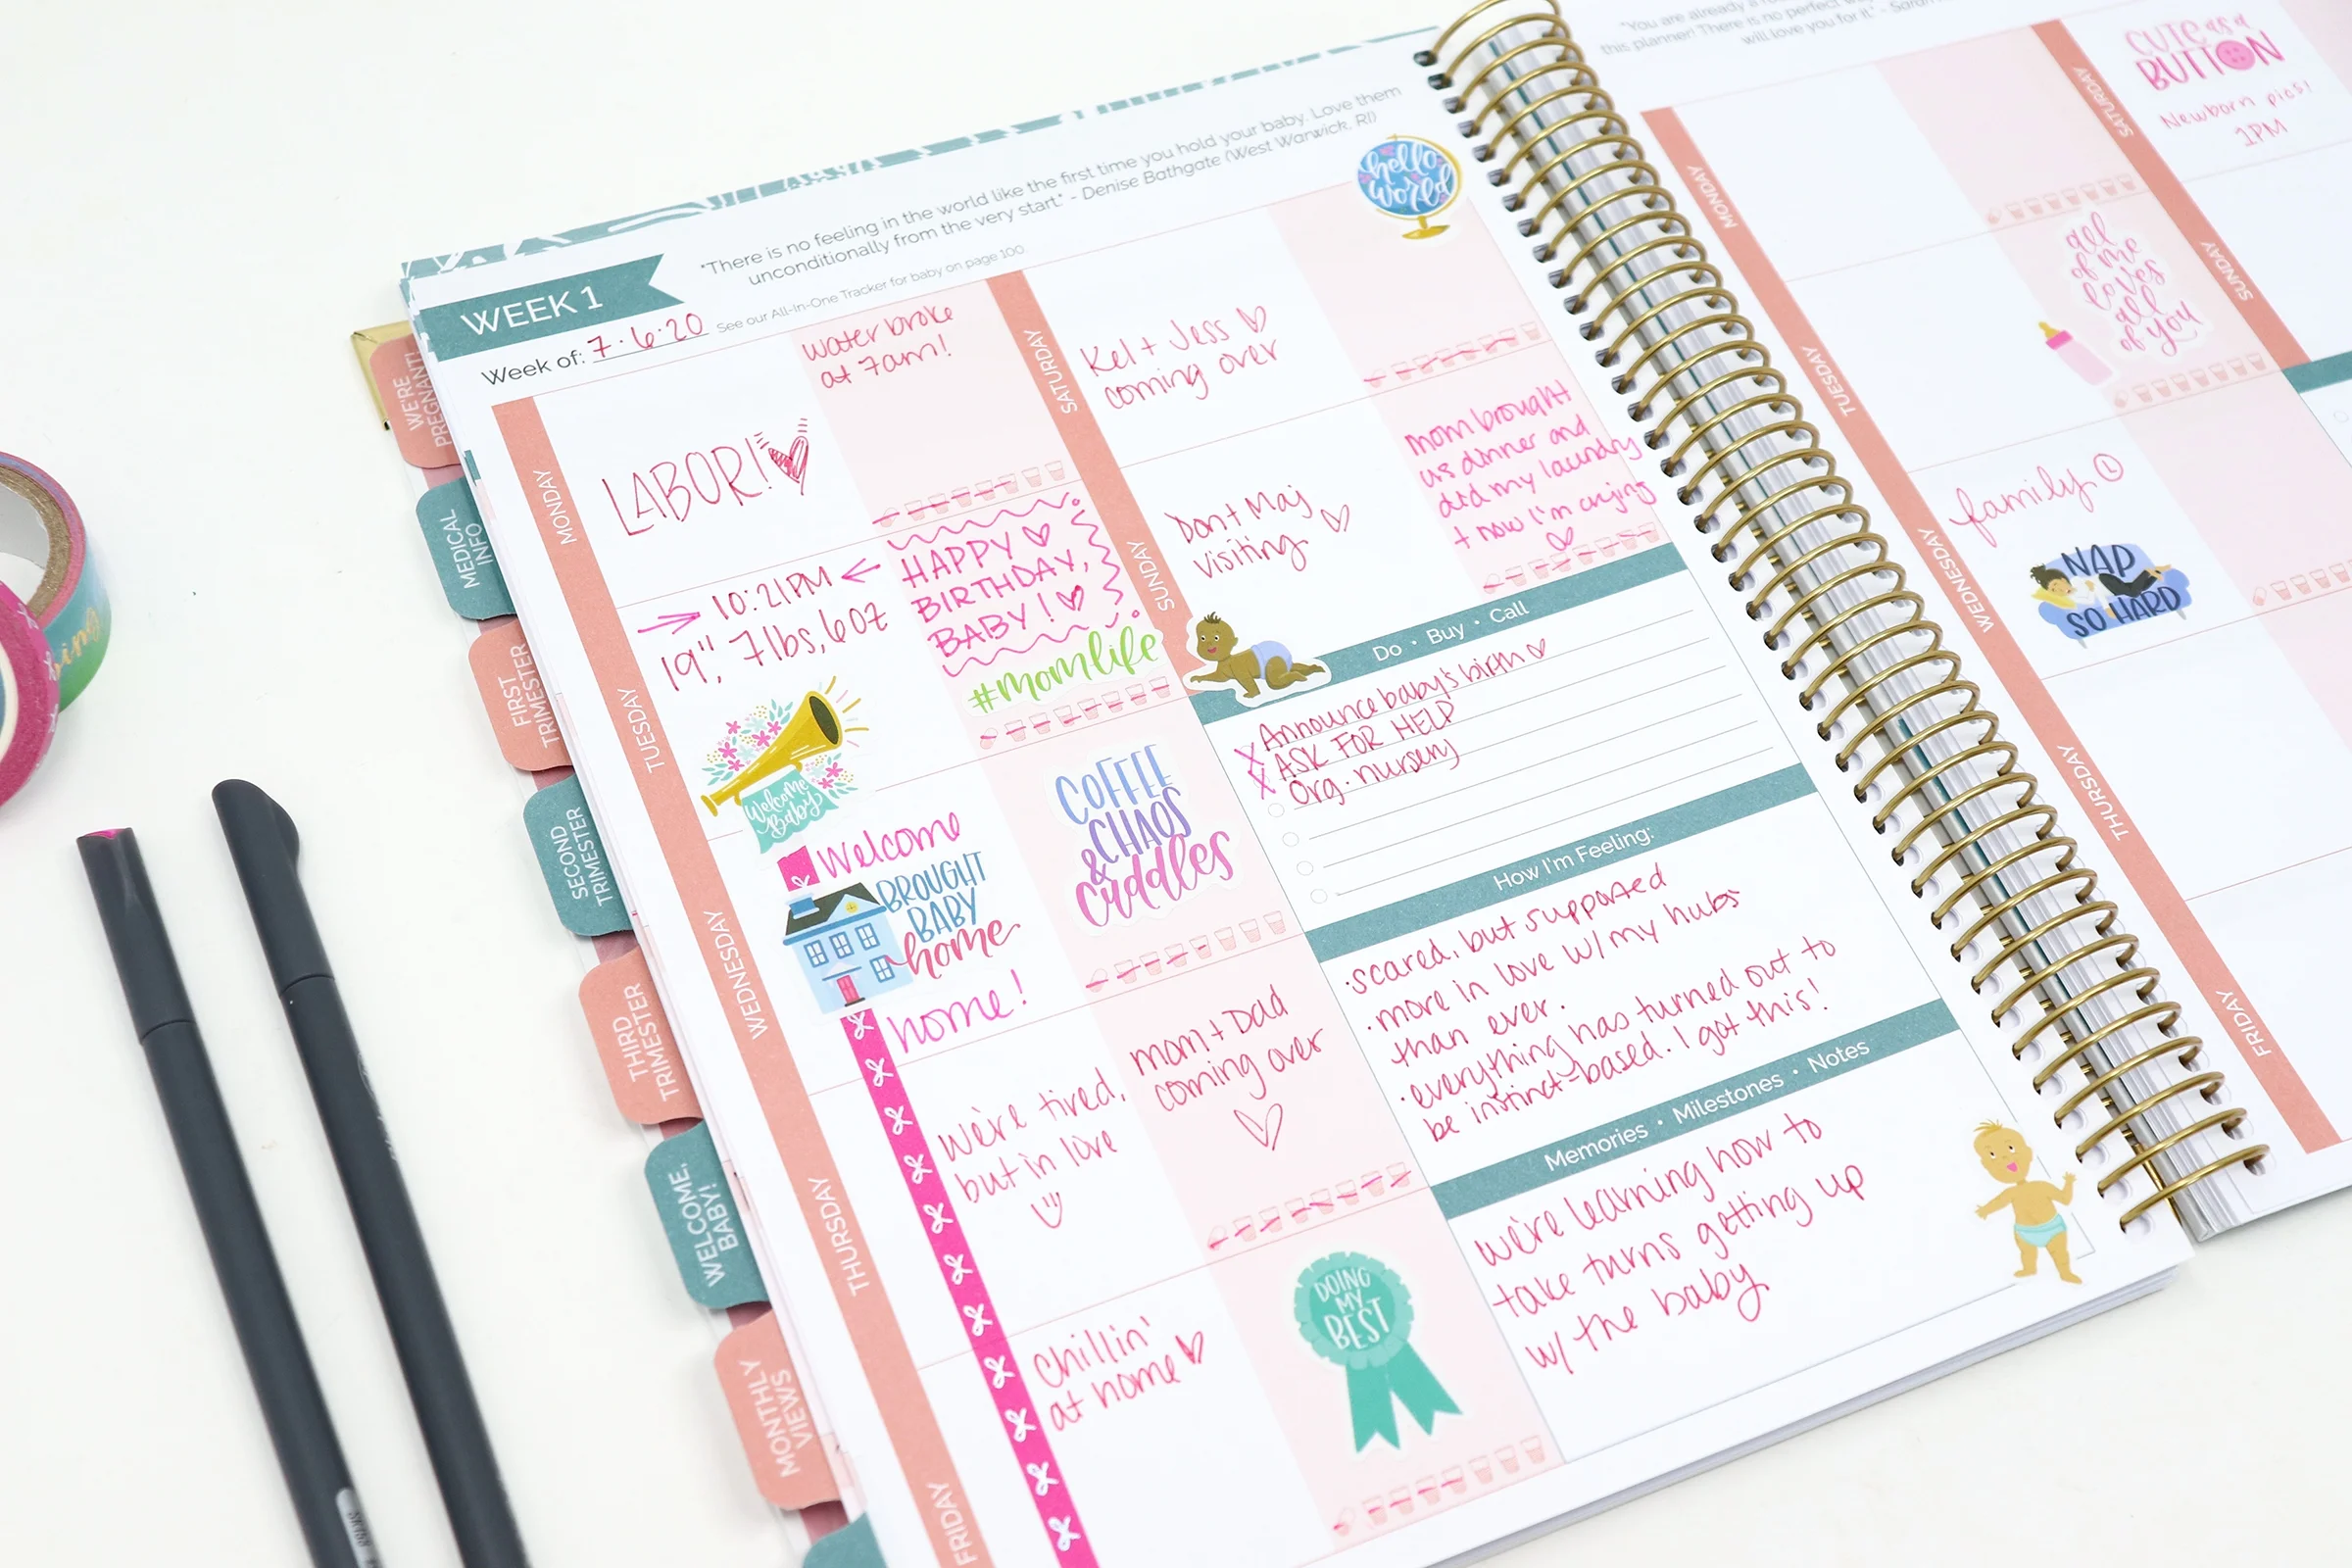 "There is no feeling in the world like the first time you hold your baby. Love them
unconditionally from the very start." - Denise Bathgate (West Warwick, RI)
WEEK 1
See our All-In-One Tracker for baby on page 100.
Week of: 7.6.20
WE'RE
PREGNANT!
MEDICAL
INFO
FIRST
TRIMESTER
SECOND
TRIMESTER
THIRD
TRIMESTER
WELCOME,
BABY!
MONTHLY
VIEWS
MONDAY
LABOR!
water broke
at 7am!
TUESDAY
10:21PM
19", 7lbs, 6oz
Welcome
Baby
HAPPY
BIRTHDAY,
BABY!
#momlife
WEDNESDAY
Welcome
BROUGHT
BABY
home
home!
COFFEE
CHAOS
&
cuddles
THURSDAY
We're tired,
but in love
mom + Dad
coming over
FRIDAY
Chillin'
at home
DOING
MY
BEST
hello
world
SATURDAY
Kel + Jess
coming over
SUNDAY
visiting
mom brought
us dinner and
did my laundry
+ now I'm crying
Do • Buy • Call
X Announce baby's birth
X ASK FOR HELP
Org. nursery
How I'm Feeling:
· scared, but supported
· more in love w/ my hubs
than ever.
· everything has turned out to
be instinct-based. I got this!
Memories • Milestones • Notes
we're learning how to
take turns getting up
w/ the baby
"You are already a
this planner! There is no perfect
will love you for it." -
MONDAY
TUESDAY
all
of me
loves
all
of you
WEDNESDAY
family
NAP
SO HARD
THURSDAY
FRIDAY
SATURDAY
CUTE as a
BUTTON
Newborn pics!
1PM
SUNDAY